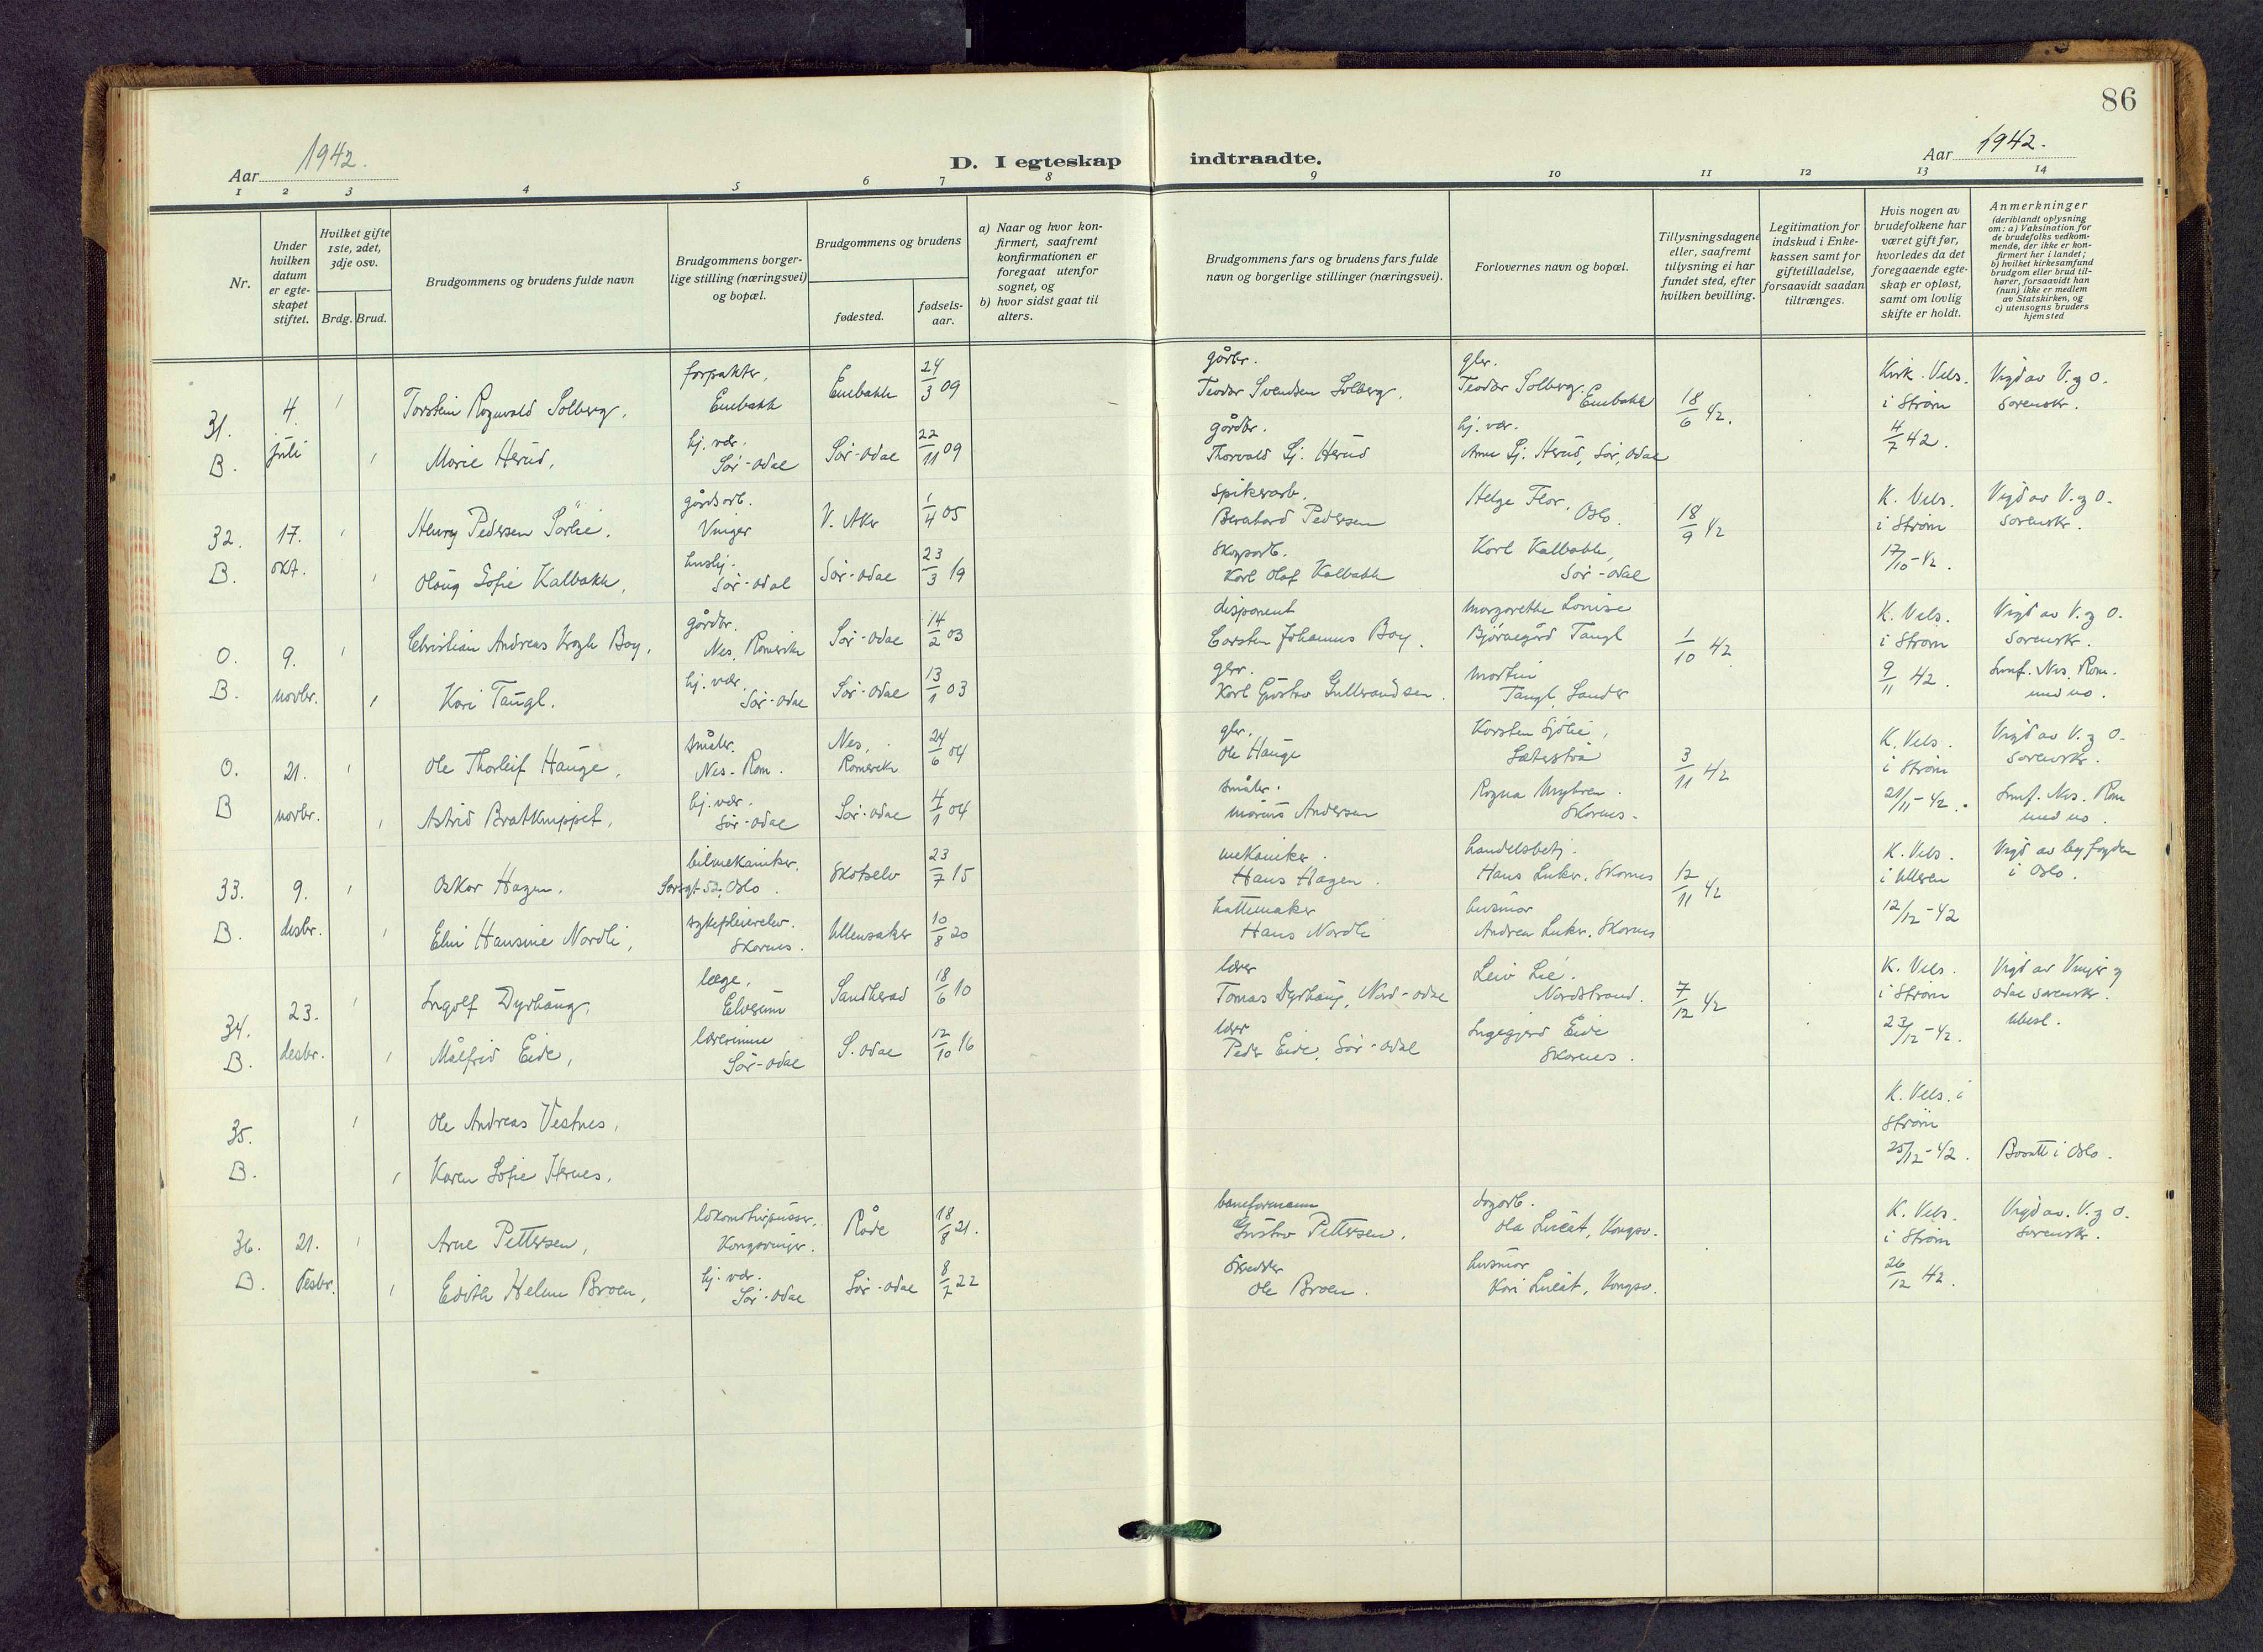 86
Aar 1942.
D. I egteskap indtraadte.
Aar 1942.
1 2 3 4 5 6 7 8 9 10 11 12 13 14
Nr.
Under hvilken datum er egteskapet stiftet.
Hvilket gifte 1ste, 2det, 3dje osv.
Brdg. Brud.
Brudgommens og brudens fulde navn
Brudgommens borgerlige stilling (næringsvei) og bopæl.
Brudgommens og brudens
fødested.
fødselsaar.
a) Naar og hvor konfirmert, saafremt konfirmationen er foregaat utenfor sognet, og
b) hvor sidst gaat til alters.
Brudgommens fars og brudens fars fulde navn og borgerlige stillinger (næringsvei).
Forlovernes navn og bopæl.
Tillysningsdagene eller, saafremt tillysning ei har fundet sted, efter hvilken bevilling.
Legitimation for indskud i Enkekassen samt for giftetilladelse, forsaavidt saadan tiltrænges.
Hvis nogen av brudefolkene har været gift før, hvorledes da det foregaaende egteskap er opløst, samt om lovlig skifte er holdt.
Anmerkninger (deriblandt oplysning om: a) Vaksination for de brudefolks vedkommende, der ikke er konfirmert her i landet; b) hvilket kirkesamfund brudgom eller brud tilhører, forsaavidt han (hun) ikke er medlem av Statskirken, og c) utensogns bruders hjemsted
31. 4. 1 Torstein Rognvald Solberg, forpakter, Enebakk Enebakk 24/3 09 gårdbr. Teodor Svendsen Solberg. gbr. Teodor Solberg, Enebakk 18/6 42. Kirk. Vels. i Strøm Vigd av V. og O. sorenskr.
B. juli 1 Marie Herud, hj. vær. Sør-Odal Sør-Odal 22/11 09 gårdbr. Thorvald Herud hj. vær. Herud, Sør-Odal 4/7 42.
32. 17. 1 Henry Pedersen Sørlie. gårdsarb. Vinger V. Aker 1/4 05 spikerarb. Pedersen Helge Flor, Oslo. 18/9 42 K. Vels. i Strøm Vigd av V. og O. sorenskr.
B. okt. 1 Olaug Sofie Kalbakk, hushj. Sør-Odal Sør-Odal 23/3 19 skogsarb. Karl Olaf Kalbakk Karl Kalbakk, Sør-Odal 17/10-42.
O. 9. 1 Christian Andreas Krogh Boy, gårdbr. Nes, Romerike Sør-Odal 14/2 03 disponent Carsten Johannes Boy. Margarethe Louise Bjørnegård Tangl 1/10 42. K. Vels. i Strøm Vigd av V. og O. sorenskr.
B. novbr. 1 Kari Tangl. hj. vær. Sør-Odal Sør-Odal 13/1 03 Karl Gustav Gulbrandsen. Martin Tangl, Sander 9/11 42. Nes. Rom.
O. 21. 1 Ole Thorleif Hauge, småbr. Nes. Rom. Nes, Romerike 24/6 04 gbr. Ole Hauge Karsten Sjølie, 3/11 42 K. Vels. i Strøm Vigd av V. og O. sorenskr.
B novbr. 1 Astrid Bratknippet, hj. vær. Sør-Odal Sør-Odal 4/1 04 småbr. Andersen Ragna Myhren. Skarnes. 21/11-42. Nes. Rom
33. 9. 1 Oskar Hagen, bilmekaniker, Oslo. Skotselv 23/7 15 mekaniker. Hans Hagen. handelsbetj. Hans Luker, Skarnes 12/11 42 K. Vels. i Ullern Vigd av byfogden i Oslo.
B. desbr. 1 Elin Hansine Nordli, sykepleierelev. Skarnes. Ullensaker 10/8 20 hattemaker Hans Nordli husmor Andrea Luker. Skarnes 12/12-42
34. 23. 1 Ingolf Dyrhaug, læge, Elverum Sandherad 18/6 10 lærer Tomas Dyrhaug, Nord-Odal Leiv Lie. Nordstrand. 7/12 42 K. Vels. i Strøm Vigd av Vinger og Odal sorenskr.
B. desbr. 1 Målfrid Eide, lærerinne Sør-Odal S. Odal 12/10 16 lærer Peder Eide, Sør-Odal Ingegjerd Eide Skarnes. 23/12-42.
35. 1 Ole Andreas Vestnes, K. Vels. i Strøm
B. 1 Karen Sofie Hernes. 25/12-42. Bosatt i Oslo.
36. 21. 1 Arne Pettersen, lokomotivpusser, Kongsvinger. Råde 18/8 21. baneformann Gustav Pettersen, Ola Liseåt, Kongsv. K. Vels. i Strøm Vigd av. V. og O. sorenskr.
B. desbr. 1 Edith Helene Broen, hj. vær. Sør-Odal Sør-Odal 8/7 22 skredder Ole Broen. husmor Kari Liseåt, Kongsv. 26/12 42.